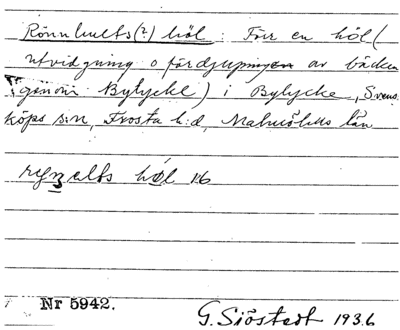 Rönnhults(?) höl : Förr en höl (
utvidgning o fördjupningen av bäcken
igenom Bylycke) i Bylycke, Svens-
köps s:n, Frosta h:d, Malmöhus län
höl 1:6
Nr 5942.
G. Sjöstedt 1936